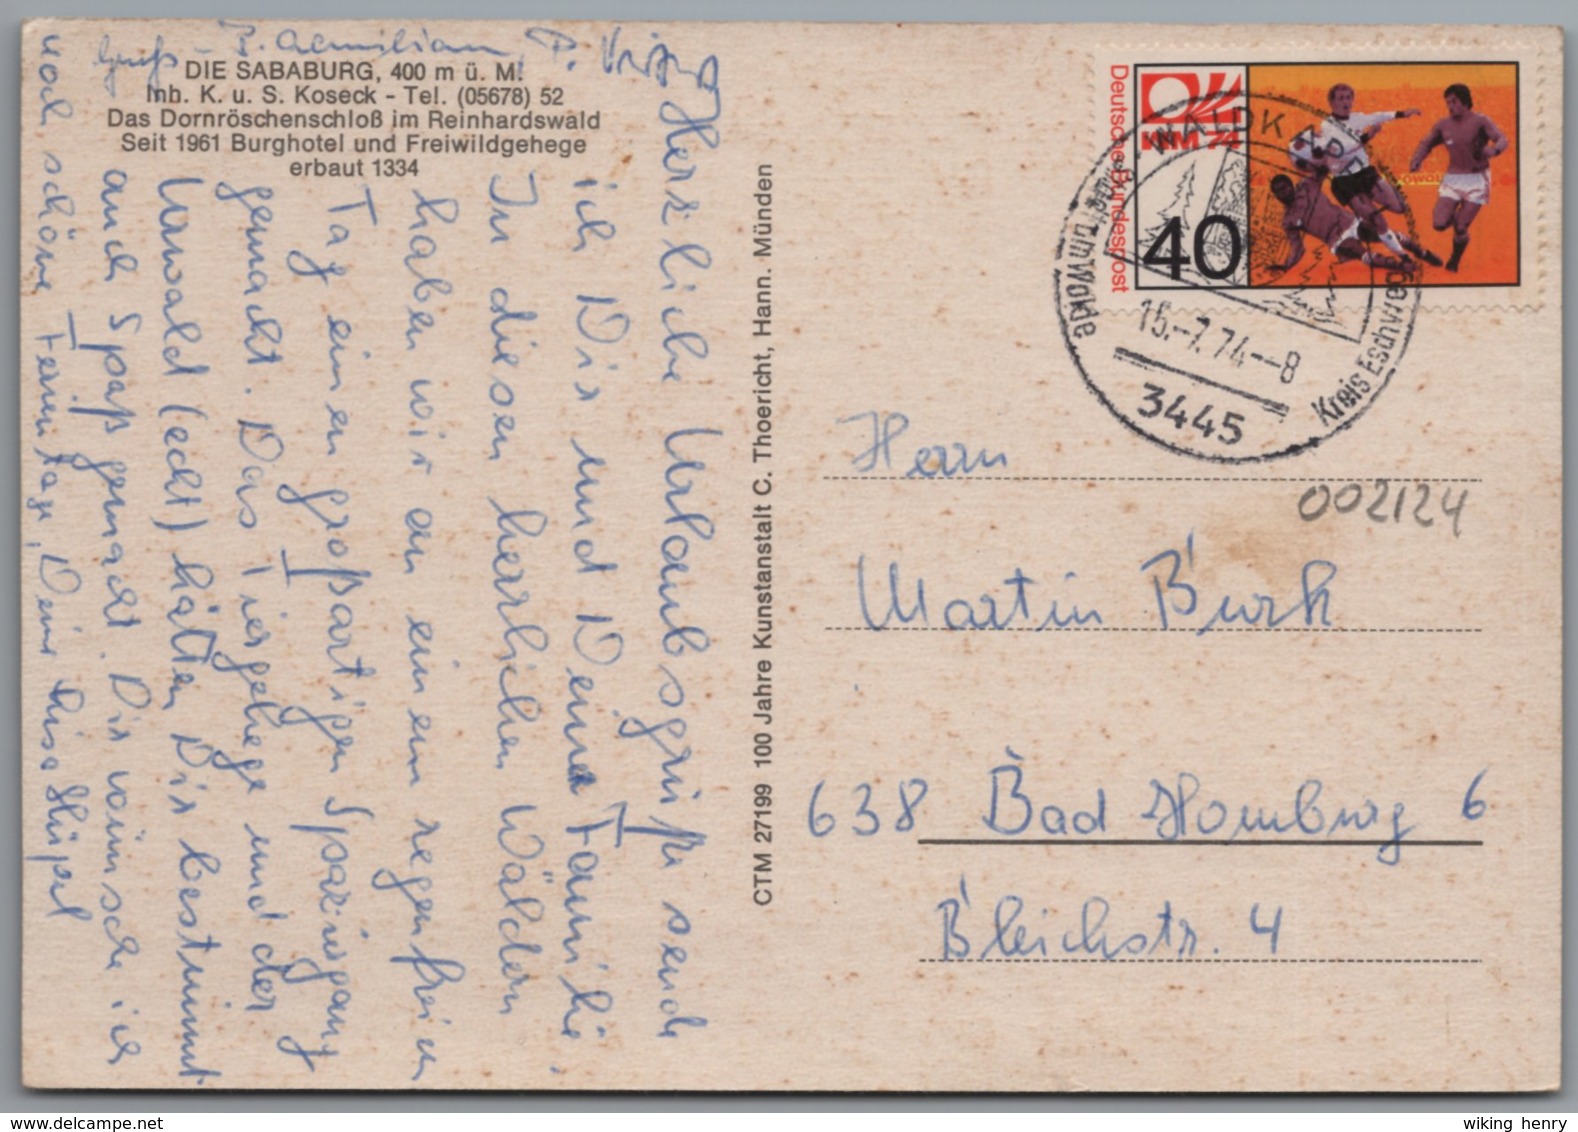 DIE SABABURG, 400 m ü. M.
Inh. K. u. S. Koseck - Tel. (05678) 52
Das Dornröschenschloß im Reinhardswald
Seit 1961 Burghotel und Freiwildgehege
erbaut 1334
Herzliche Urlaubsgrüße sende
ich Dir und Deiner Familie.
In diesen herrlichen Wäldern
haben wir an einem regenfreien
Tag einen großartigen Spaziergang
gemacht. Das Tiergehege und der
Urwald (echt) hätten Dir bestimmt
auch Spaß gemacht. Dir wünsche ich
noch schöne Ferientage, Deine
Gruß
CTM 27199 100 Jahre Kunstanstalt C. Thoericht, Hann. Münden
Deutsche Bundespost
WM 74
40
WALDKAPPEL
15.-7.74--8
3445
Kreis Eschwege
Herrn
002124
Martin Burk
638 Bad Homburg 6
Bleichstr. 4
www.delcampe.net
wiking henry